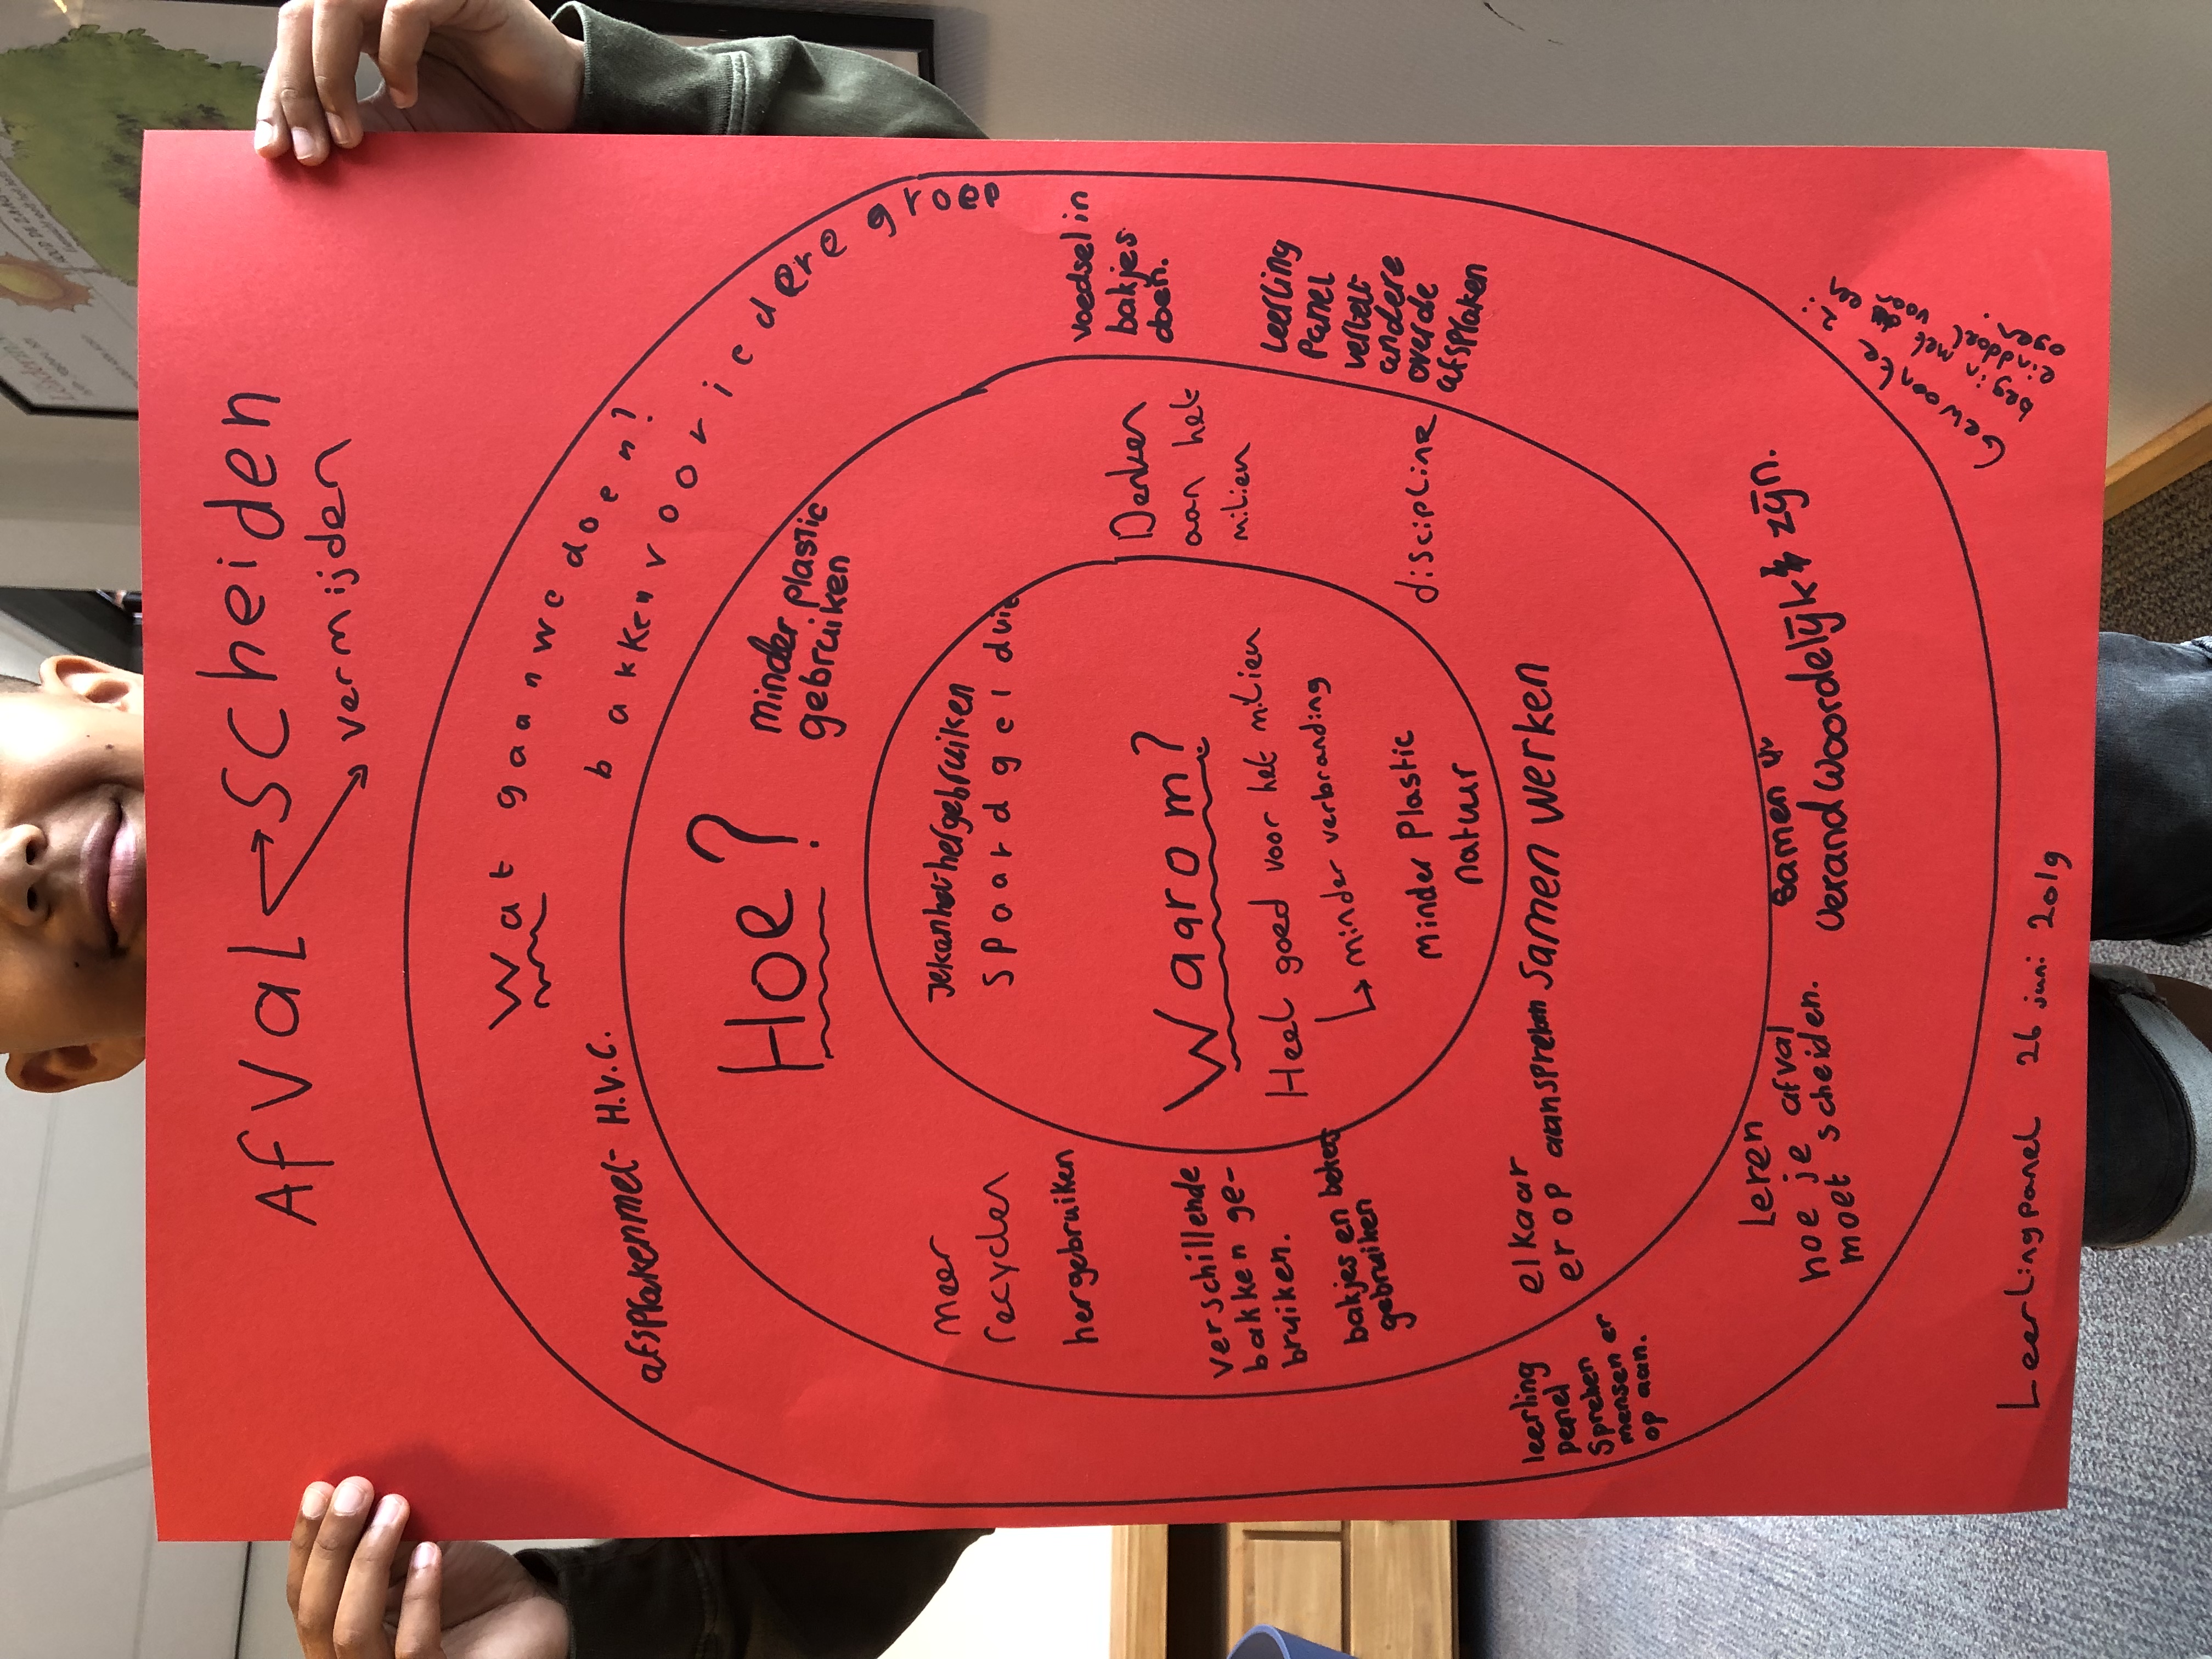 Afval → scheiden
→ vermijden
Wat gaan we doen?
bakken voor iedere groep
afspraken met H.V.C.
voedsel in
bakjes
doen.
Leerling
Panel
vertelt
andere
over de
afspraken
Hoe?
minder plastic
gebruiken
meer
recyclen
hergebruiken
Denken
aan het
milieu
discipline
Je kan het hergebruiken
Spaard geld
Waarom?
Heel goed voor het milieu
↳ minder verbranding
minder Plastic
natuur
verschillende
bakken ge-
bruiken.
bakjes en bekers
gebruiken
elkaar
er op aanspreken
samen werken
leerling
penel
Spreken
mensen er
op aan.
Leren
hoe je afval
moet scheiden.
Samen
verandwoordelijk zijn.
Gewoonte 2:
begin met
einddoel voor
ogen.
Leerlingpanel 26 juni 2019